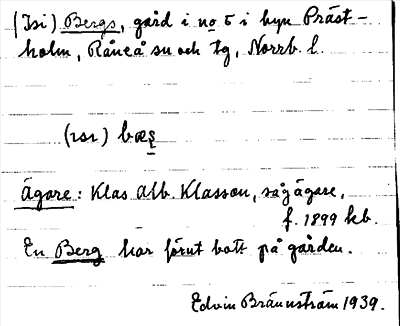 (Isi) Bergs, gård i no 5 i byn Präst-
holm, Råneå sn och tg, Norrb. l.
(ɪsɪ) bæʂ
Ägare: Klas Alb. Klasson, sågägare,
f. 1899 hb.
En Berg har förut bott på gården.
Edvin Brännström 1939.